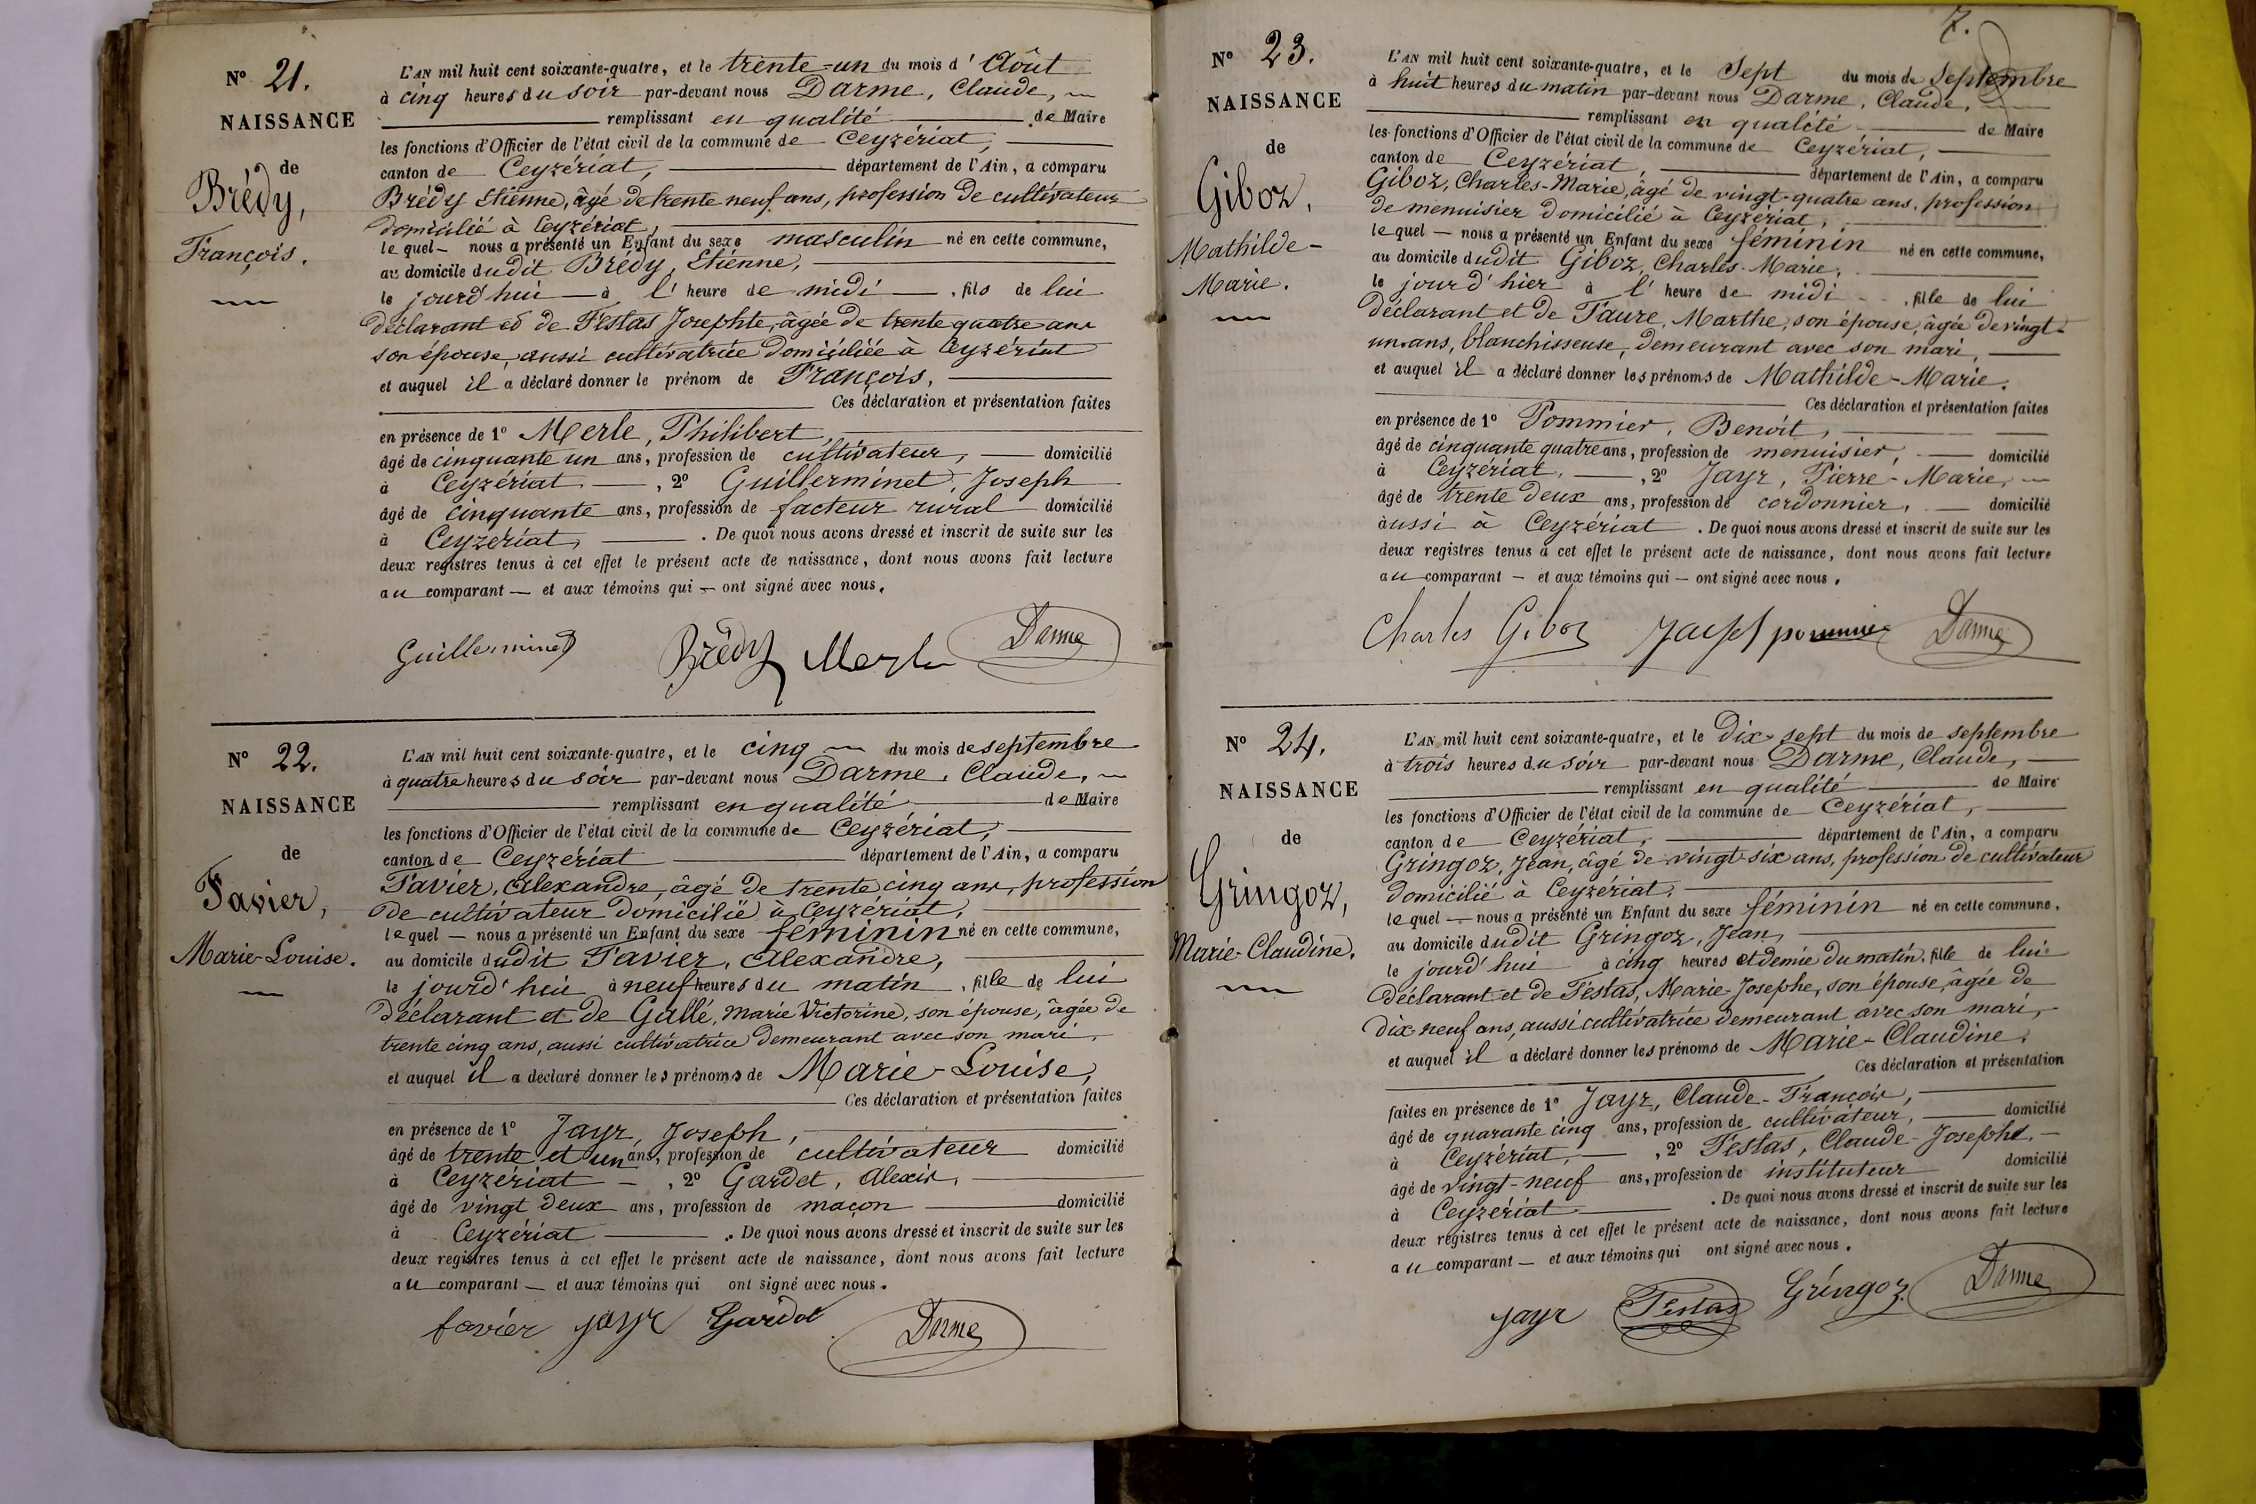 N° 21.
NAISSANCE
de
Brédy,
François.
L'AN mil huit cent soixante-quatre, et le trente-un du mois d'Aôut
à cinq heures du soir par-devant nous Darme, Claude,
remplissant en qualité de Maire
les fonctions d'Officier de l'état civil de la commune de Ceyzériat,
canton de Ceyzériat, département de l'Ain, a comparu
Brédy Etienne, âgé de trente neuf ans, profession de cultivateur
domicilié à Ceyzériat,
le quel nous a présenté un Enfant du sexe masculin né en cette commune,
au domicile dudit Brédy, Etienne,
le jourd'hui à l'heure de midi, fils de lui
déclarant et de Testas Josephte, âgée de trente quatre ans
son épouse, aussi cultivatrice domiciliée à Ceyzériat
et auquel il a déclaré donner le prénom de François,
Ces déclaration et présentation faites
en présence de 1° Merle, Philibert,
âgé de cinquante un ans, profession de cultivateur, domicilié
à Ceyzériat, 2° Guillerminet, Joseph
âgé de cinquante ans, profession de facteur rural domicilié
à Ceyzériat, . De quoi nous avons dressé et inscrit de suite sur les
deux registres tenus à cet effet le présent acte de naissance, dont nous avons fait lecture
au comparant — et aux témoins qui — ont signé avec nous.
Guillerminet Brédy Merle Darme
N° 22.
NAISSANCE
de
Favier,
Marie-Louise.
L'AN mil huit cent soixante-quatre, et le cinq du mois de septembre
à quatre heures du soir par-devant nous Darme, Claude,
remplissant en qualité de Maire
les fonctions d'Officier de l'état civil de la commune de Ceyzériat,
canton de Ceyzériat département de l'Ain, a comparu
Favier, Alexandre, âgé de trente cinq ans, profession
de cultivateur domicilié à Ceyzériat,
le quel — nous a présenté un Enfant du sexe féminin né en cette commune,
au domicile dudit Favier, Alexandre,
le jourd'hui à neuf heures du matin, fille de lui
déclarant et de Gallé, Marie Victorine, son épouse, âgée de
trente cinq ans, aussi cultivatrice demeurant avec son mari,
et auquel il a déclaré donner les prénoms de Marie-Louise,
Ces déclaration et présentation faites
en présence de 1° Jayr, Joseph,
âgé de trente et un ans, profession de cultivateur domicilié
à Ceyzériat — , 2° Gardet, Alexis,
âgé de vingt deux ans, profession de maçon domicilié
à Ceyzériat . De quoi nous avons dressé et inscrit de suite sur les
deux registres tenus à cet effet le présent acte de naissance, dont nous avons fait lecture
au comparant — et aux témoins qui ont signé avec nous.
favier jayr Gardet Darme
7.
N° 23.
NAISSANCE
de
Giboz,
Mathilde-
Marie.
L'AN mil huit cent soixante-quatre, et le Sept du mois de Septembre
à huit heures du matin par-devant nous Darme, Claude,
remplissant en qualité de Maire
les fonctions d'Officier de l'état civil de la commune de Ceyzériat,
canton de Ceyzériat département de l'Ain, a comparu
Giboz, Charles-Marie, âgé de vingt-quatre ans, profession
de menuisier domicilié à Ceyzériat,
le quel — nous a présenté un Enfant du sexe féminin né en cette commune,
au domicile dudit Giboz, Charles-Marie,
le jour d'hier à l'heure de midi, fille de lui
déclarant et de Faure, Marthe, son épouse, âgée de vingt-
un ans, blanchisseuse, demeurant avec son mari,
et auquel il a déclaré donner les prénoms de Mathilde-Marie.
Ces déclaration et présentation faites
en présence de 1° Pommier, Benoît,
âgé de cinquante quatre ans, profession de menuisier, domicilié
à Ceyzériat, 2° Jayr, Pierre-Marie,
âgé de trente deux ans, profession de cordonnier, domicilié
aussi à Ceyzériat . De quoi nous avons dressé et inscrit de suite sur les
deux registres tenus à cet effet le présent acte de naissance, dont nous avons fait lecture
au comparant — et aux témoins qui — ont signé avec nous.
Charles Giboz pommier Darme
N° 24.
NAISSANCE
de
Gringoz,
Marie-Claudine.
L'AN mil huit cent soixante-quatre, et le Dix-sept du mois de septembre
à trois heures du soir par-devant nous Darme, Claude,
remplissant en qualité de Maire
les fonctions d'Officier de l'état civil de la commune de Ceyzériat,
canton de Ceyzériat, département de l'Ain, a comparu
Gringoz, Jean, âgé de vingt six ans, profession de cultivateur
domicilié à Ceyzériat,
le quel — nous a présenté un Enfant du sexe féminin né en cette commune,
au domicile dudit Gringoz, Jean,
le jourd'hui à cinq heures et demie du matin, fille de lui
déclarant et de Testas, Marie-Josephe, son épouse, âgée de
dix neuf ans, aussi cultivatrice demeurant avec son mari,
et auquel il a déclaré donner les prénoms de Marie-Claudine.
Ces déclaration et présentation
faites en présence de 1° Jayr, Claude-François,
âgé de quarante cinq ans, profession de cultivateur, domicilié
à Ceyzériat, , 2° Testas, Claude-Joseph,
âgé de vingt-neuf ans, profession de instituteur domicilié
à Ceyzériat . De quoi nous avons dressé et inscrit de suite sur les
deux registres tenus à cet effet le présent acte de naissance, dont nous avons fait lecture
au comparant — et aux témoins qui ont signé avec nous.
jayr Testas Gringoz Darme